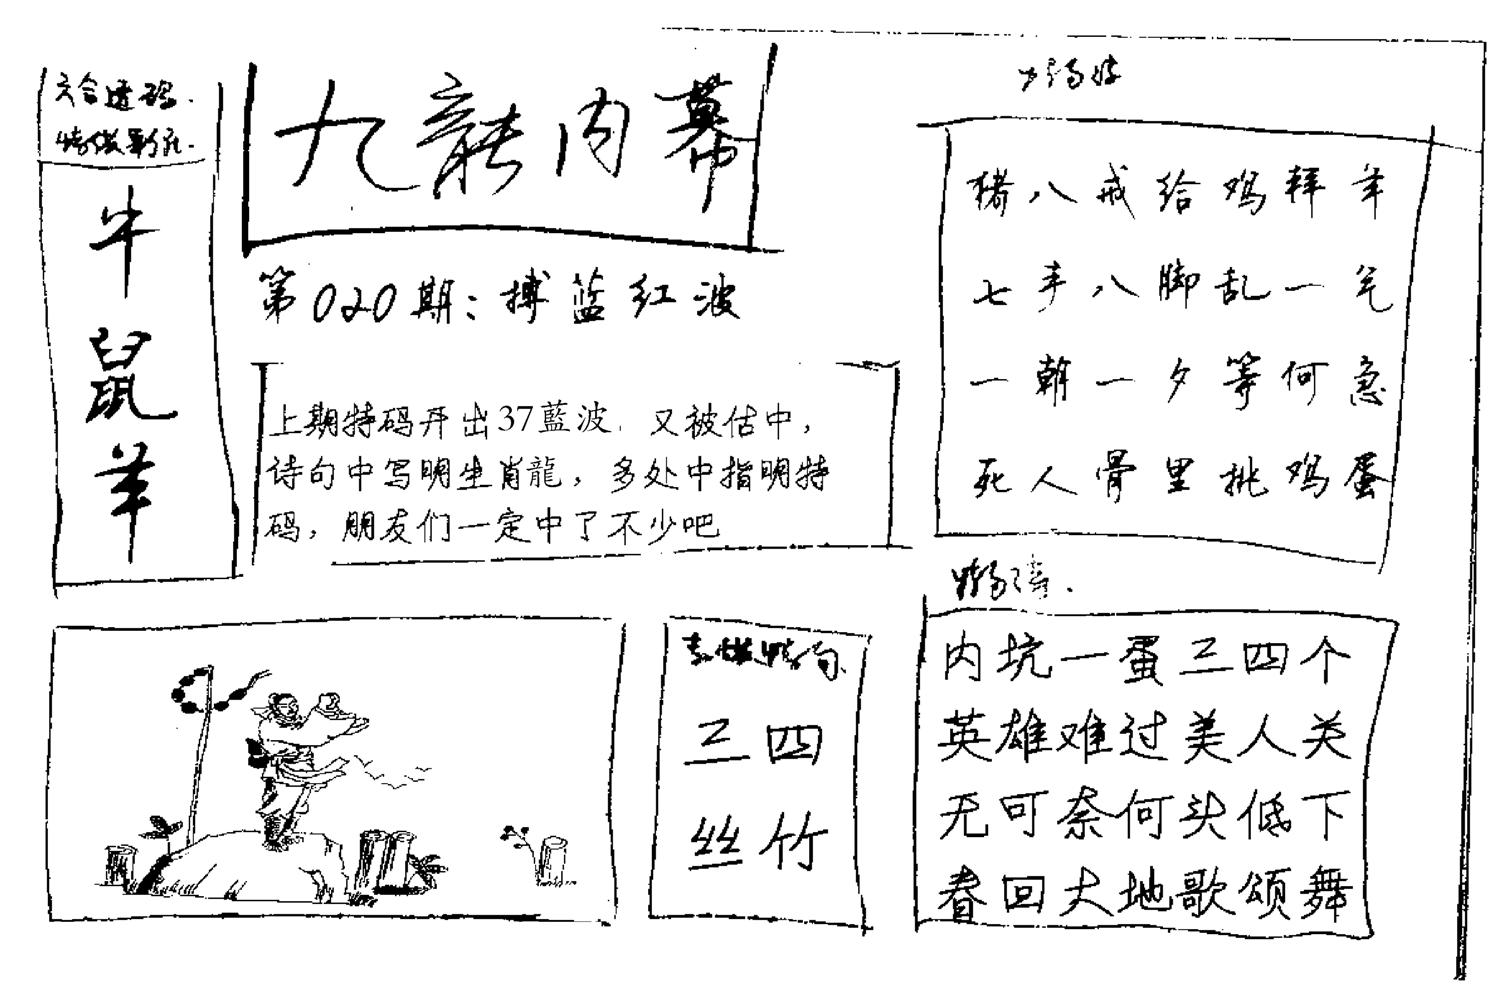 六合透码.
牛
鼠
羊
九龍内幕
第020期：搏蓝红波
上期特码开出37藍波. 又被估中，
诗句中写明生肖龍，多处中指明特
码，朋友们一定中了不少吧
猪八戒给鸡拜年
七手八脚乱一气
一朝一夕等何急
死人骨里挑鸡蛋
三四
丝竹
内坑一蛋三四个
英雄难过美人关
无可奈何头低下
春回大地歌颂舞